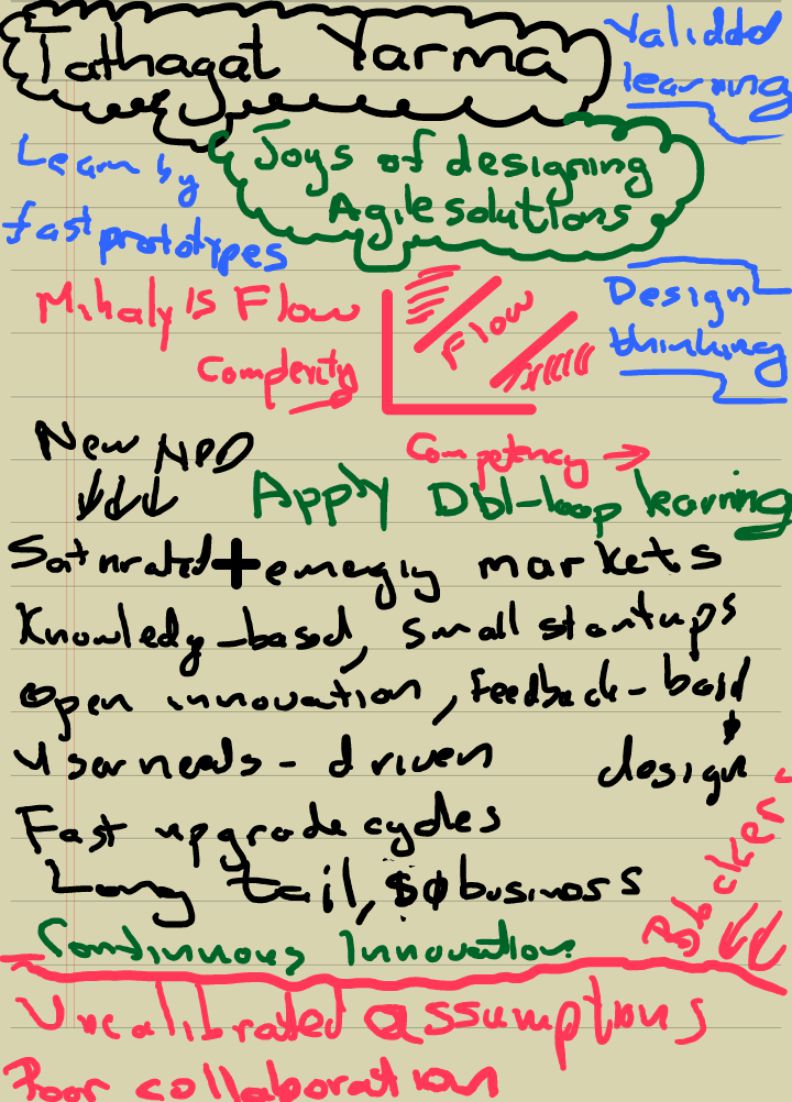 Tathagat Varma
Validated
learning
Joys of designing
Agile solutions
Learn by
fast prototypes
Mihaly's Flow
Flow
Complexity
Competency →
Design
thinking
New NPD
↓↓↓
Apply Dbl-loop learning
Saturated + emerging markets
Knowledge-based, small startups
Open innovation, feedback-based
design
User needs-driven
Fast upgrade cycles
Long tail, $0 business
Continuous Innovation
Blockers
Uncalibrated assumptions
Poor collaboration